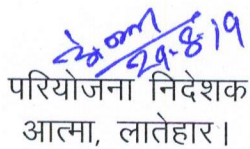 29-8-19
परियोजना निदेशक
आत्मा, लातेहार।